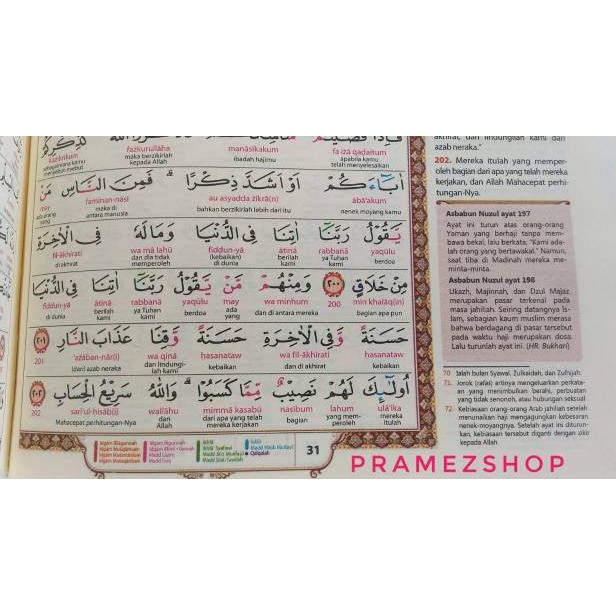 فَاِذَا قَضَيْتُمْ مَّنَاسِكَكُمْ
fa iżā qaḍaitum manāsikakum fażkurullāha każikrikum
apabila kamu telah menyelesaikan ibadah hajimu maka berzikirlah kepada Allah
اٰبَاۤءَكُمْ اَوْ اَشَدَّ ذِكْرًا ۗ فَمِنَ النَّاسِ مَنْ
ābā'akum au asyadda żikrā(n) faminan-nāsi may
nenek moyang kamu bahkan berzikirlah lebih dari itu maka di antara manusia ada orang yang
يَّقُوْلُ رَبَّنَآ اٰتِنَا فِى الدُّنْيَا وَمَا لَهٗ فِى الْاٰخِرَةِ
yaqūlu rabbanā ātinā fid-dun-yā wa mā lahū fil-ākhirati
berdoa ya Tuhan kami berilah kami (kebaikan) di dunia dan dia tidak memperoleh di akhirat
مِنْ خَلَاقٍ ٢٠٠ وَمِنْهُمْ مَّنْ يَّقُوْلُ رَبَّنَآ اٰتِنَا فِى الدُّنْيَا
min khalāq(in) 200 wa minhum may yaqūlu rabbanā ātinā fid-dun-yā
bagian apa pun dan di antara mereka ada yang berdoa ya Tuhan kami berilah kami di dunia
حَسَنَةً وَّفِى الْاٰخِرَةِ حَسَنَةً وَّقِنَا عَذَابَ النَّارِ ٢٠١
ḥasanataw wa fil-ākhirati ḥasanataw wa qinā 'ażāban-nār(i) 201
kebaikan dan di akhirat kebaikan dan lindungilah kami (dari) azab neraka
اُولٰۤىِٕكَ لَهُمْ نَصِيْبٌ مِّمَّا كَسَبُوْا ۗ وَاللّٰهُ سَرِيْعُ الْحِسَابِ ٢٠٢
ulā'ika lahum naṣībum mimmā kasabū wallāhu sarī'ul-ḥisāb(i) 202
mereka itulah memperoleh bagian dari apa yang telah mereka kerjakan dan Allah Mahacepat perhitungan-Nya
31
azab neraka."
202. Mereka itulah yang memper-
oleh bagian dari apa yang telah mereka
kerjakan, dan Allah Mahacepat perhi-
tungan-Nya.
Asbabun Nuzul ayat 197
Ayat ini turun atas orang-orang
Yaman yang berhaji tanpa mem-
bawa bekal, lalu berkata, "Kami ada-
lah orang yang bertawakal." Namun,
saat tiba di Madinah mereka me-
minta-minta.
Asbabun Nuzul ayat 198
Ukazh, Majinnah, dan Dzul Majaz
merupakan pasar terkenal pada
masa jahiliah. Seiring datangnya Is-
lam, sebagian kaum muslim merasa
bahwa berdagang di pasar tersebut
pada waktu haji merupakan dosa.
Lalu turunlah ayat ini. (HR. Bukhari)
70 Ialah bulan Syawal, Zulkaidah, dan Zulhijah.
71. Jorok (rafas) artinya mengeluarkan perkata-
an yang menimbulkan berahi, perbuatan
yang tidak senonoh, atau hubungan seksual
72. Kebiasaan orang-orang Arab jahiliah setelah
menunaikan haji mengagungkan kebesaran
nenek-moyangnya. Setelah ayat ini diturun-
kan, kebiasaan tersebut diganti dengan zikir
kepada Allah
PRAMEZSHOP